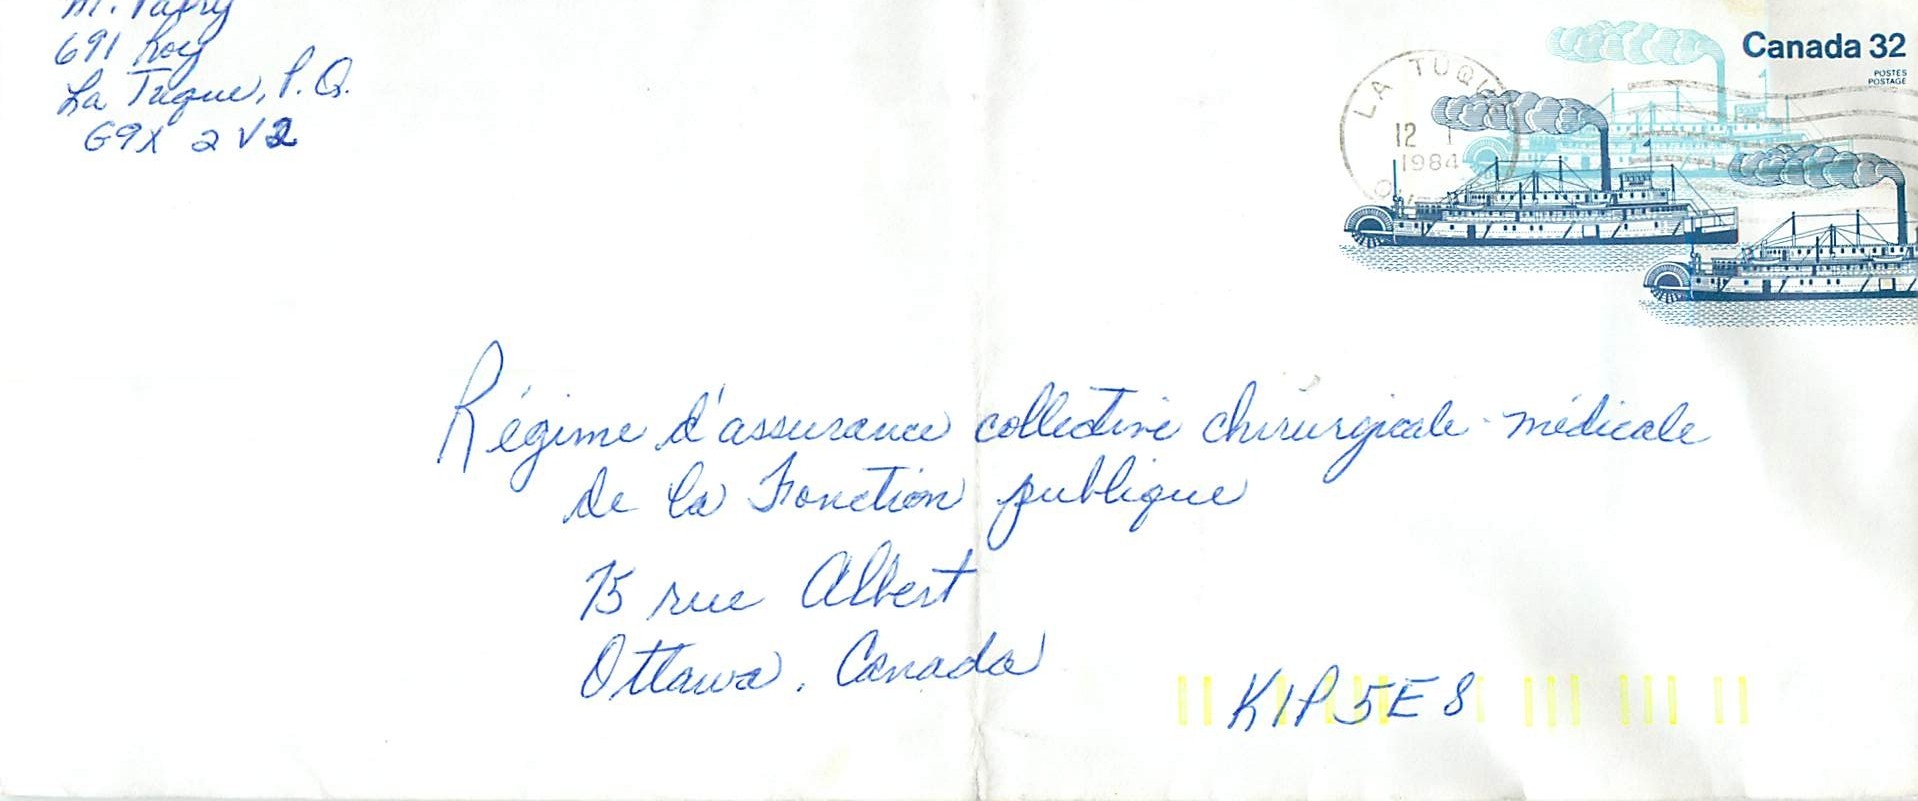 M. Papry
691 Roy
La Tuque, P.Q.
G9X 2V2
Canada 32
POSTES
POSTAGE
LA TUQU
12 I
1984
Régime d'assurance collective chirurgicale-médicale
de la Fonction publique
75 rue Albert
Ottawa, Canada
K1P 5E8